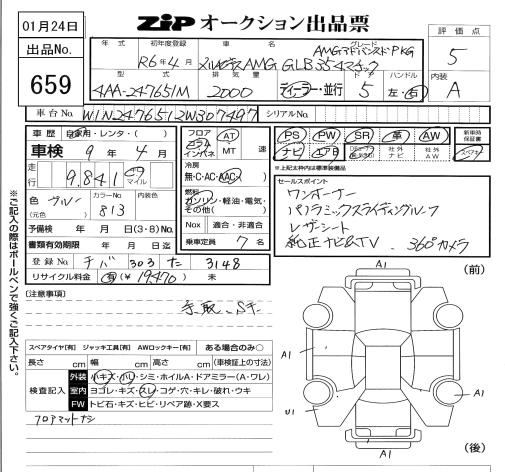 01月24日
出品No.
659
ZiP オークション出品票
評価点
5
内装
A
年式 初年度登録 車名 グレード
R6年4月 メルセデスAMG GLB35 4マチック
AMGアドバンスドPKG
型式 排気量 ドア ハンドル
4AA-247651M 2000 ディーラー・並行 5 左・右
車台No. W1N2476512W307497 シリアルNo.
車歴 自家用・レンタ・( )
車検 9年4月
走行 9,841 キロ マイル
色 ブルー カラーNo. 813
(元色)
予備検 年 月 日(3・8)No.
書類有効期限 年 月 日迄
登録No. チバ 303 た 3148
リサイクル料金 有(¥19,470) 未
フロア コラム インパネ AT・MT 速
冷房
無・C・AC・AAC
燃料
ガソリン・軽油・電気・その他( )
Nox 適合・非適合
乗車定員 7 名
PS PW SR 革 AW 新車時保証書
ナビ エアB 社外ナビ 社外AW
※上記太枠内は標準装備品
セールスポイント
ワンオーナー
パノラミックスライディングルーフ
レザーシート
純正ナビ&TV、360°カメラ
[注意事項]
スペアタイヤ[有] ジャッキ工具[有] AWロックキー[有] ある場合のみ○
長さ cm 幅 cm 高さ cm (車検証上の寸法)
検査記入
外装 小キズ・小凹・シミ・ホイルA・ドアミラー(A・ワレ)
室内 ヨゴレ・キズ・スレ・コゲ・穴・キレ・破れ・ウキ
FW トビ石・キズ・ヒビ・リペア跡・X要ス
フロアマットナシ
※ご記入の際はボールペンで強くご記入下さい。
A1
(前)
A1
A1
U1
A1
(後)